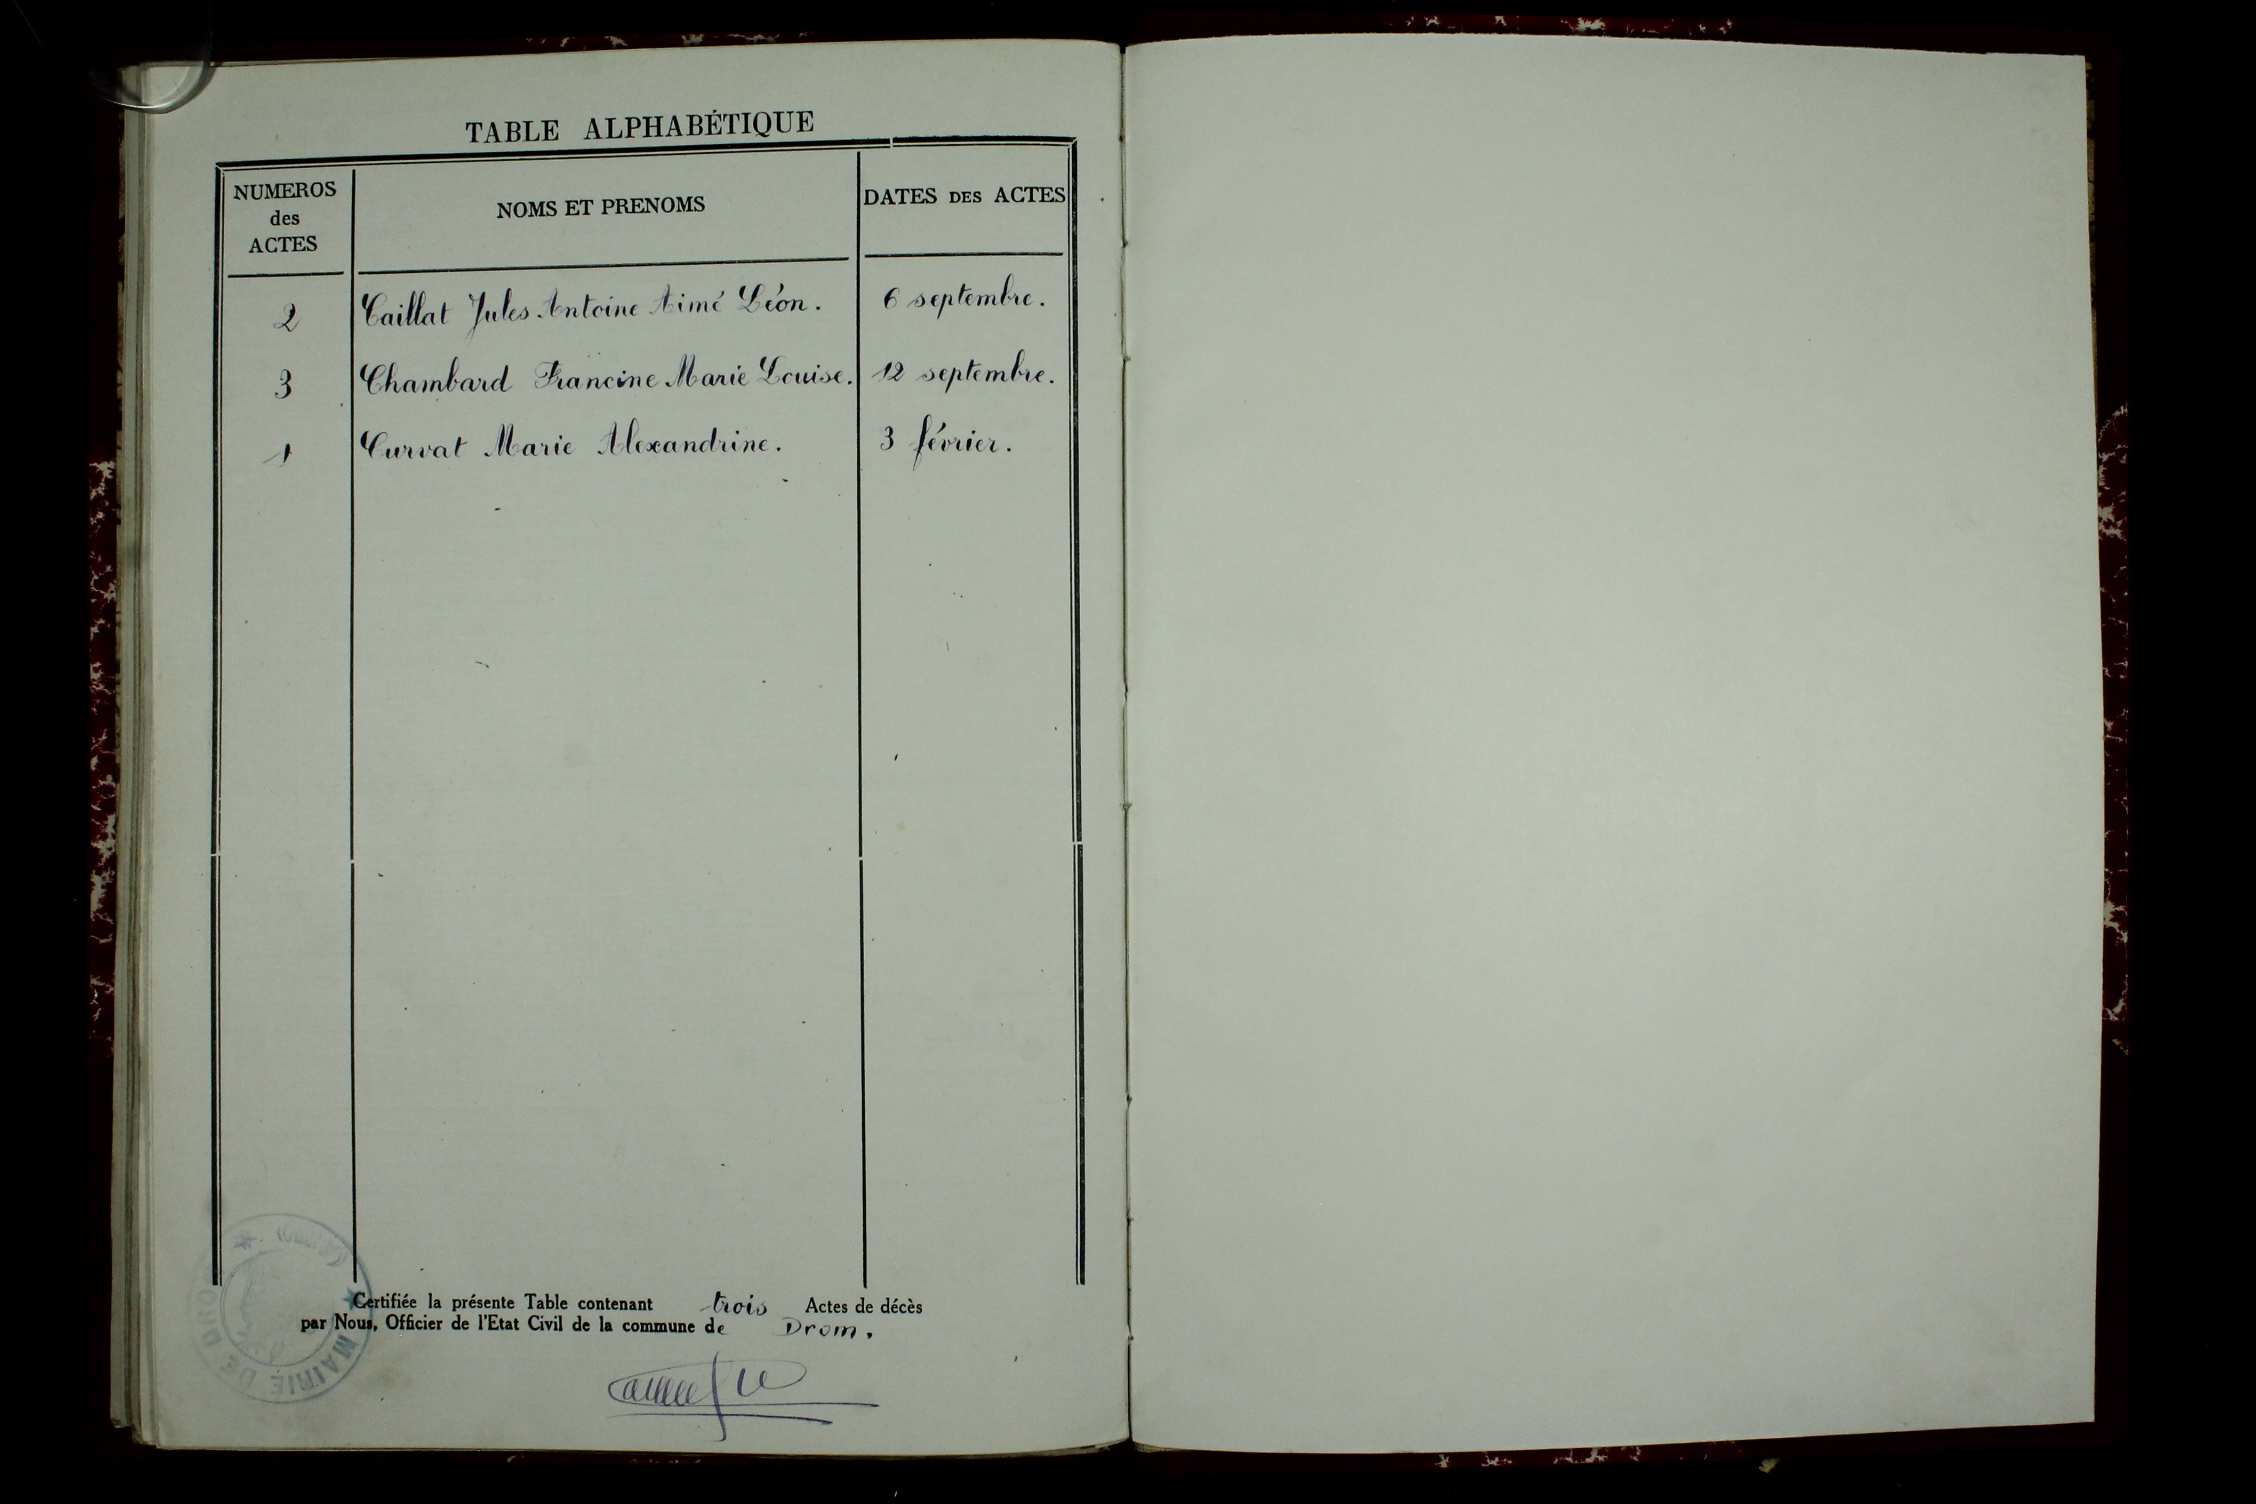 TABLE ALPHABÉTIQUE
NUMEROS
des
ACTES
NOMS ET PRENOMS
DATES DES ACTES
2 Caillat Jules Antoine Aimé Léon. 6 septembre.
3 Chambard Francine Marie Louise. 12 septembre.
1 Curvat Marie Alexandrine. 3 février.
Certifiée la présente Table contenant trois Actes de décès
par Nous, Officier de l'Etat Civil de la commune de Drom.
MAIRIE DE DROM